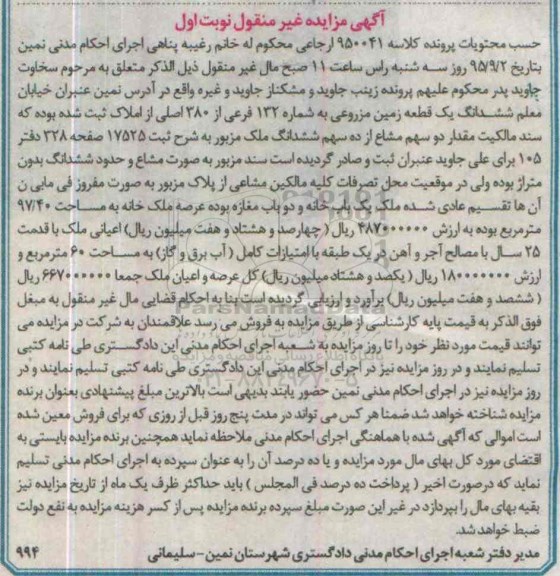 آگهی مزایده غیر منقول نوبت اول
حسب محتویات پرونده کلاسه ۹۵۰۰۴۱ ارجاعی محکوم له خانم رغیبه پناهی اجرای احکام مدنی نمین
بتاریخ ۹۵/۹/۲ روز سه شنبه راس ساعت ۱۱ صبح مال غیر منقول ذیل الذکر متعلق به مرحوم سخاوت
جاوید پدر محکوم علیهم پرونده زینب جاوید و مشکناز جاوید و غیره واقع در آدرس نمین عنبران خیابان
معلم ششدانگ یک قطعه زمین مزروعی به شماره ۱۳۲ فرعی از ۳۸۰ اصلی از املاک ثبت شده بوده که
سند مالکیت مقدار دو سهم مشاع از ده سهم ششدانگ ملک مزبور به شرح ثبت ۱۷۵۲۵ صفحه ۳۲۸ دفتر
۱۰۵ برای علی جاوید عنبران ثبت و صادر گردیده است سند مزبور به صورت مشاع و حدود ششدانگ بدون
متراژ بوده ولی در موقعیت محل تصرفات کلیه مالکین مشاعی از پلاک مزبور به صورت مفروز فی مابی ن
آن ها تقسیم عادی شده ملک یک باب خانه و دو باب مغازه بوده عرصه ملک خانه به مساحت ۹۷/۴۰
مترمربع بوده به ارزش ۴۸۷۰۰۰۰۰۰ ریال (چهارصد و هشتاد و هفت میلیون ریال) اعیانی ملک با قدمت
۲۵ سال با مصالح آجر و آهن در یک طبقه با امتیازات کامل (آب برق و گاز) به مساحت ۶۰ مترمربع و
ارزش ۱۸۰۰۰۰۰۰۰ ریال (یکصد و هشتاد میلیون ریال) کل عرصه و اعیان ملک جمعا ۶۶۷۰۰۰۰۰۰ ریال
(ششصد و هفت میلیون ریال) برآورد و ارزیابی گردیده است بنا به احکام قضایی مال غیر منقول به مبلغ
فوق الذکر به قیمت پایه کارشناسی از طریق مزایده به فروش می رسد علاقمندان به شرکت در مزایده می
توانند قیمت مورد نظر خود را تا روز مزایده به شعبه اجرای احکام مدنی این دادگستری طی نامه کتبی
تسلیم نمایند و در روز مزایده نیز در اجرای احکام مدنی این دادگستری طی نامه کتبی تسلیم نمایند و در
روز مزایده نیز در اجرای احکام مدنی نمین حضور یابند بدیهی است بالاترین مبلغ پیشنهادی بعنوان برنده
مزایده شناخته خواهد شد ضمنا هر کس می تواند در مدت پنج روز قبل از روزی که برای فروش معین شده
است اموالی که آگهی شده با هماهنگی اجرای احکام مدنی ملاحظه نماید همچنین برنده مزایده بایستی به
اقتضای مورد کل بهای مال مورد مزایده و یا ده درصد آن را به عنوان سپرده به اجرای احکام مدنی تسلیم
نماید که درصورت اخیر (پرداخت ده درصد فی المجلس) باید حداکثر ظرف یک ماه از تاریخ مزایده نیز
بقیه بهای مال را بپردازد در غیر این صورت مبلغ سپرده برنده مزایده پس از کسر هزینه مزایده به نفع دولت
ضبط خواهد شد.
مدیر دفتر شعبه اجرای احکام مدنی دادگستری شهرستان نمین - سلیمانی ۹۹۴